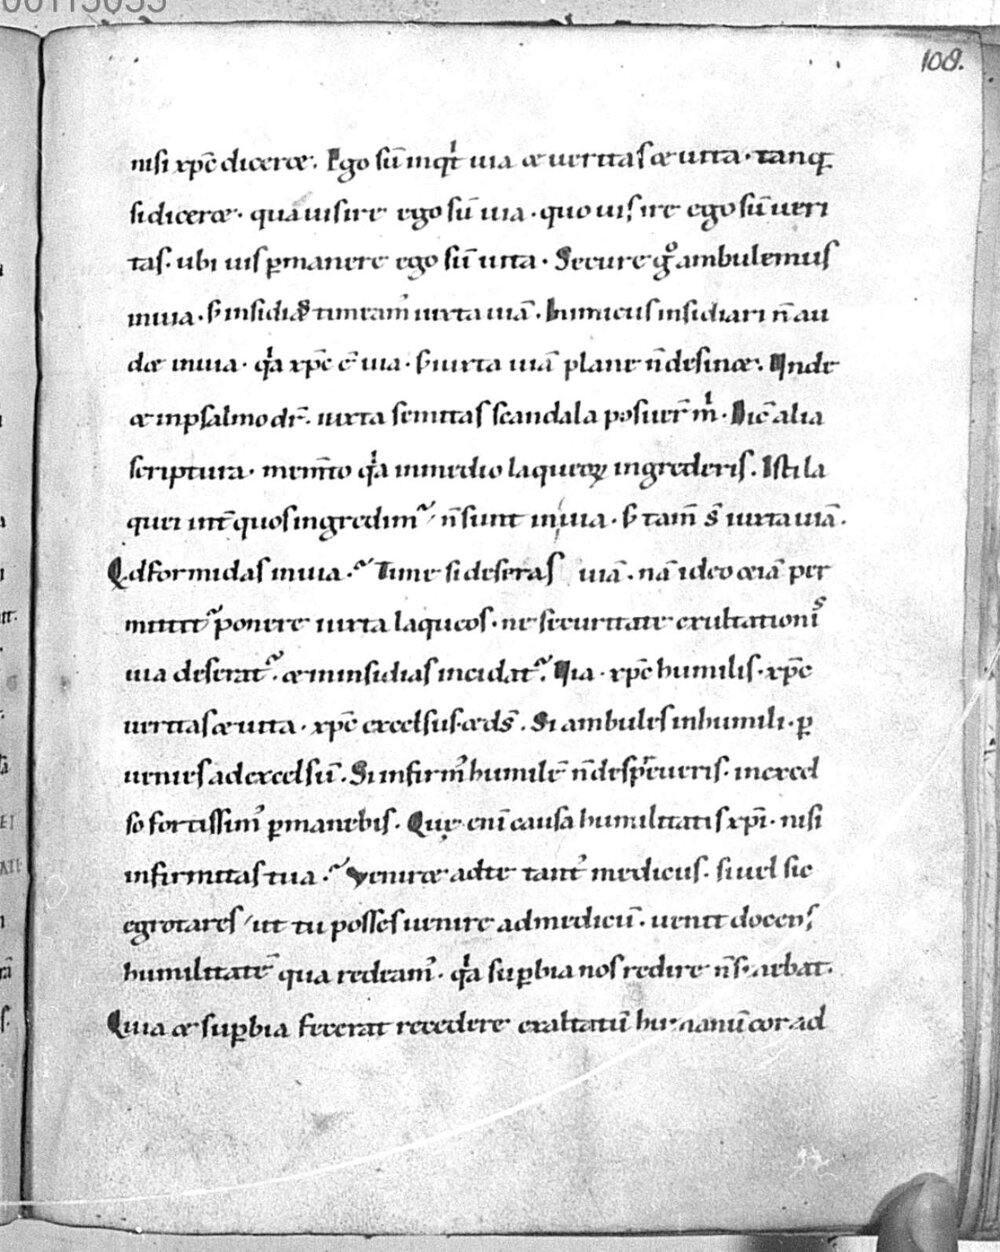 108.
nisi xp̄c diceret. Ego sū inqͥt uia et ueritas et uita. tanq̄
si diceret. qua uis ire ego sū uia. quo uis ire ego sū ueri
tas. ubi uis ꝑmanere ego sū uita. Secure gͦ ambulemus
in uia. s; insidias timeamꝰ iuxta uiā. Inimicus insidiari n̄ au
det in uia. qͥa xp̄c ē uia. s; iuxta uiā plane n̄ desinet. Unde
et in psalmo dr̄. iuxta semitas scandala posuer̄ mͥ. Dic̄ alia
scriptura. mem̄to qͥa in medio laqueoꝝ ingrederis. Isti la
quei int̄ quos ingredimr̃ n̄ sunt in uia. s; tam̄ s̄ iuxta uiā.
Qd formidas in uia. Time si deseras uiā. nā ideo etiā per
mittitr̃ ponere iuxta laqueos. ne securitate exultationis
uia deseratr̃. et in insidias incidatr̃. Uia. xp̄c humilis. xp̄c
ueritas et uita. xp̄c excelsus. et ds̄. Si ambules in humili. ꝑ
uenies ad excelsū. Si infirmꝰ humilē n̄ desp̄ueris. in excel
so fortissimꝰ ꝑmanebis. Quę enī causa humilitatis xp̄i. nisi
infirmitas tua. Veniret ad te tantꝰ medicus. si uel sic
egrotares ut tu posses uenire ad medicū. uenit docens
humilitatē qua redeamꝰ. qͥa suꝑbia nos redire n̄ sinebat.
Quia et suꝑbia fecerat recedere exaltatū humanū cor a d̄